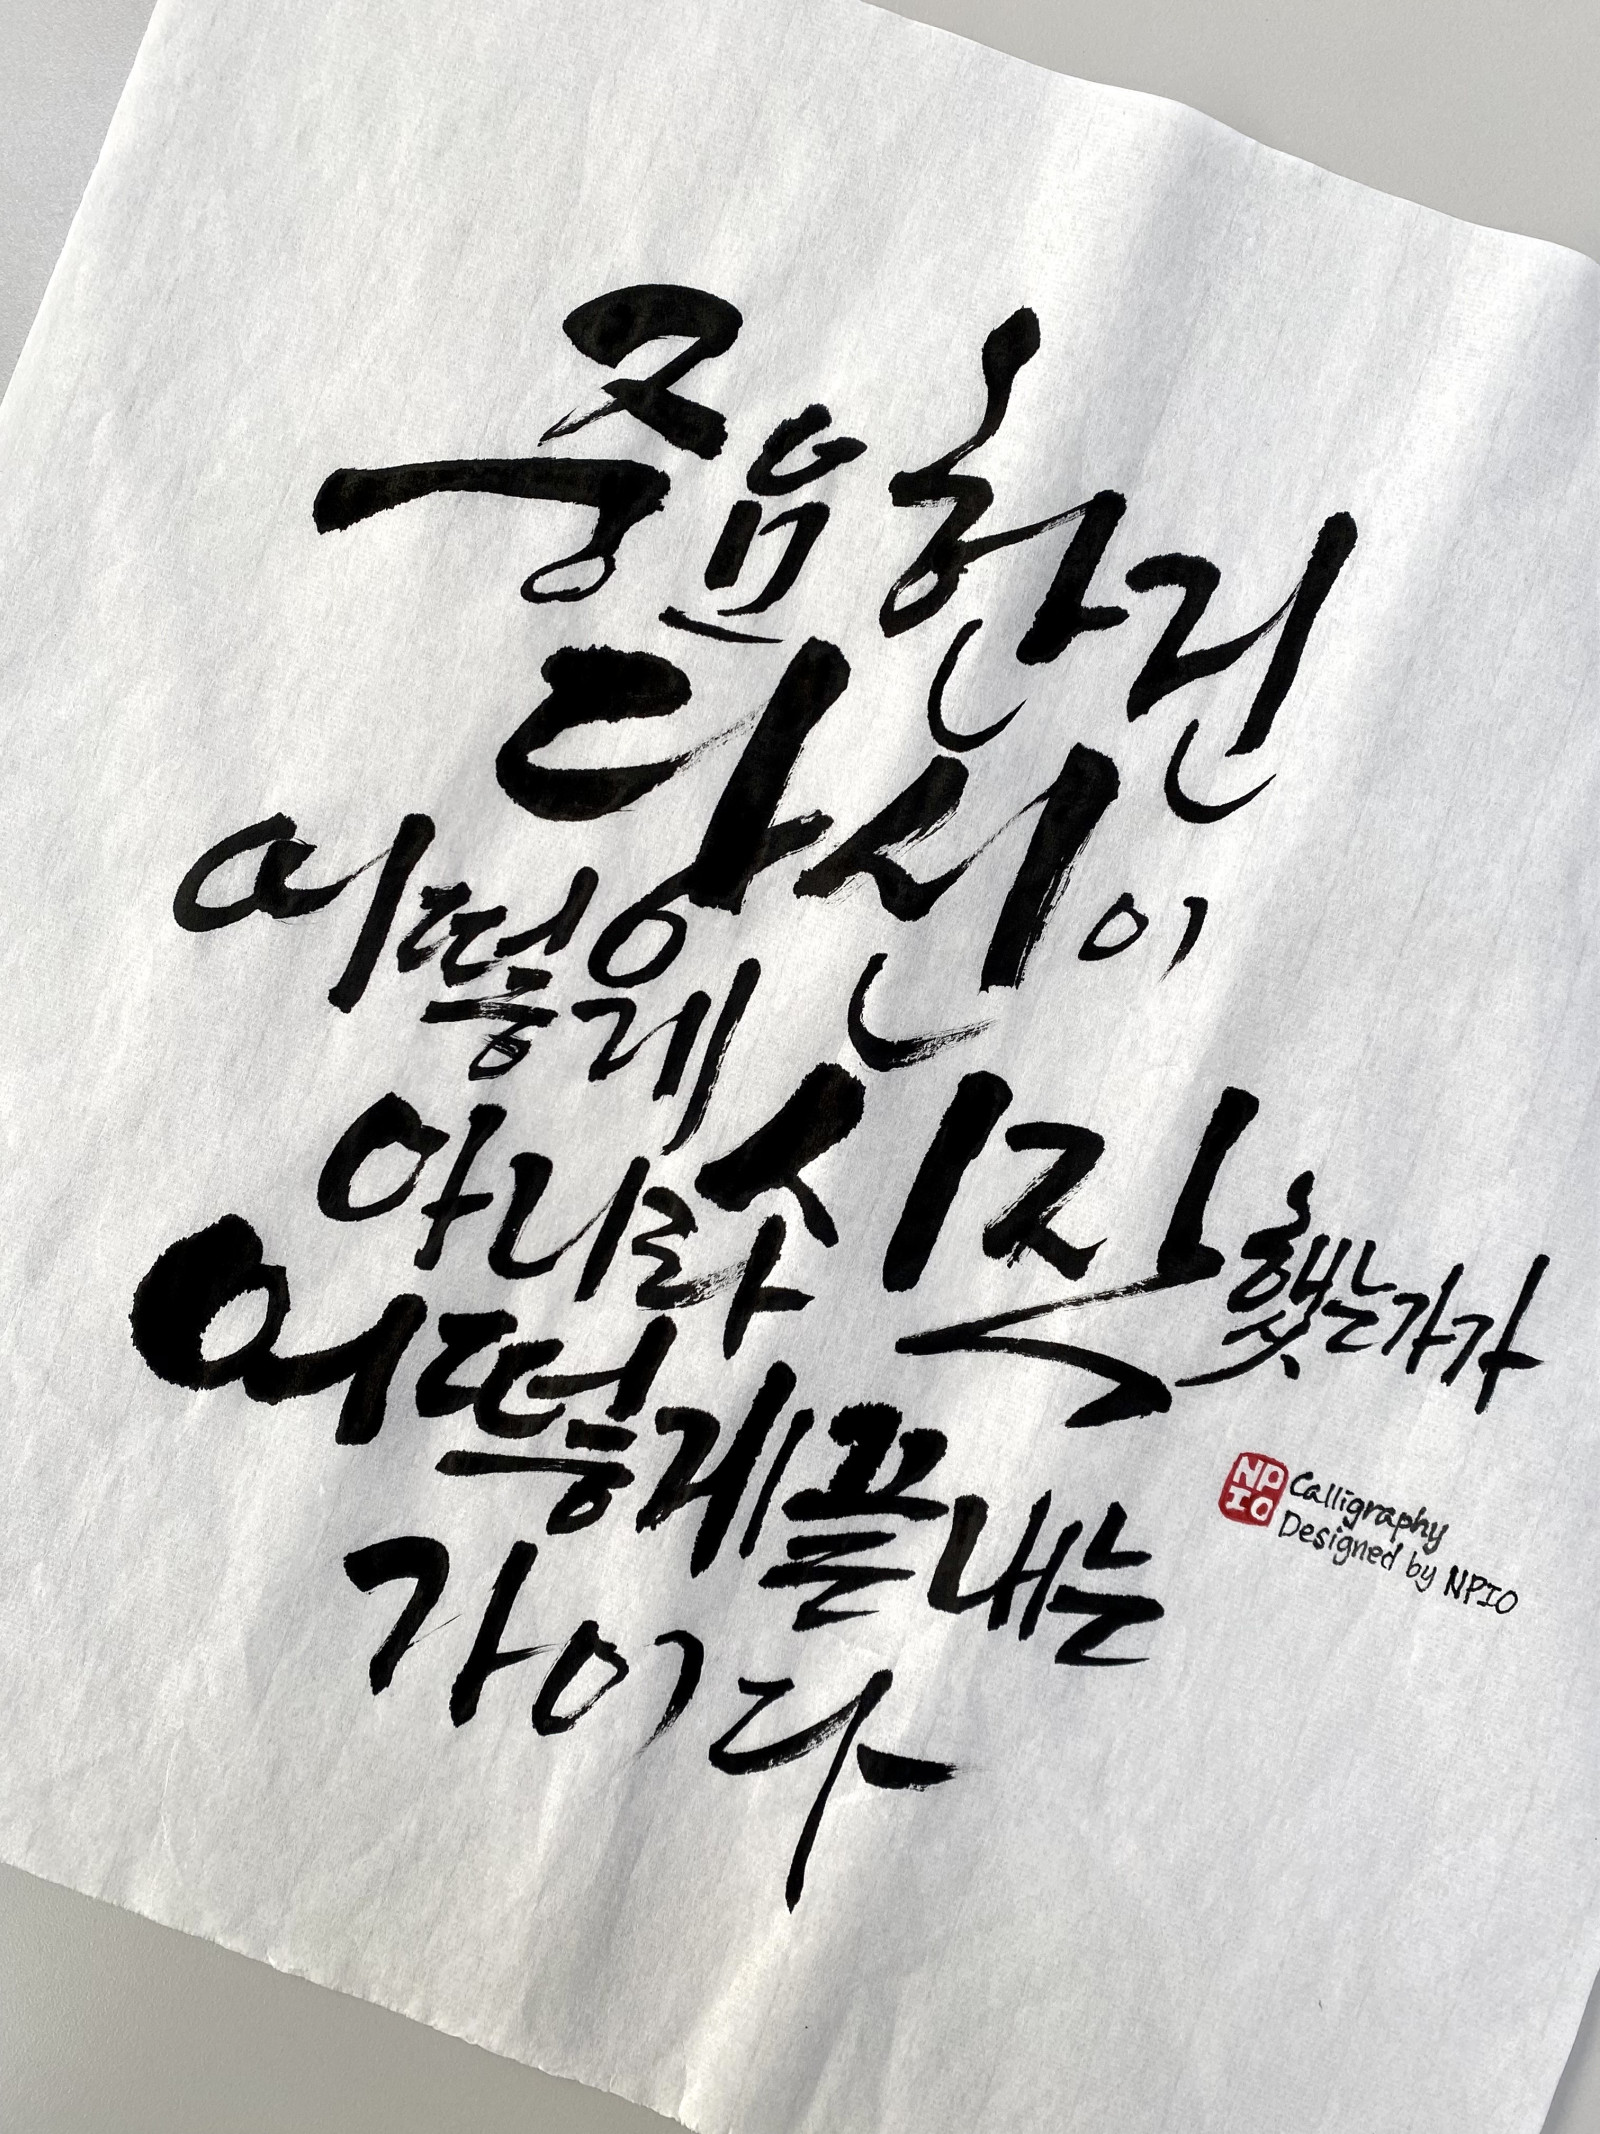 중요한건
당신이
어떻게
시작했는가가
아니라
어떻게 끝내는
가이다
NP
IO
Calligraphy
Designed by NPIO